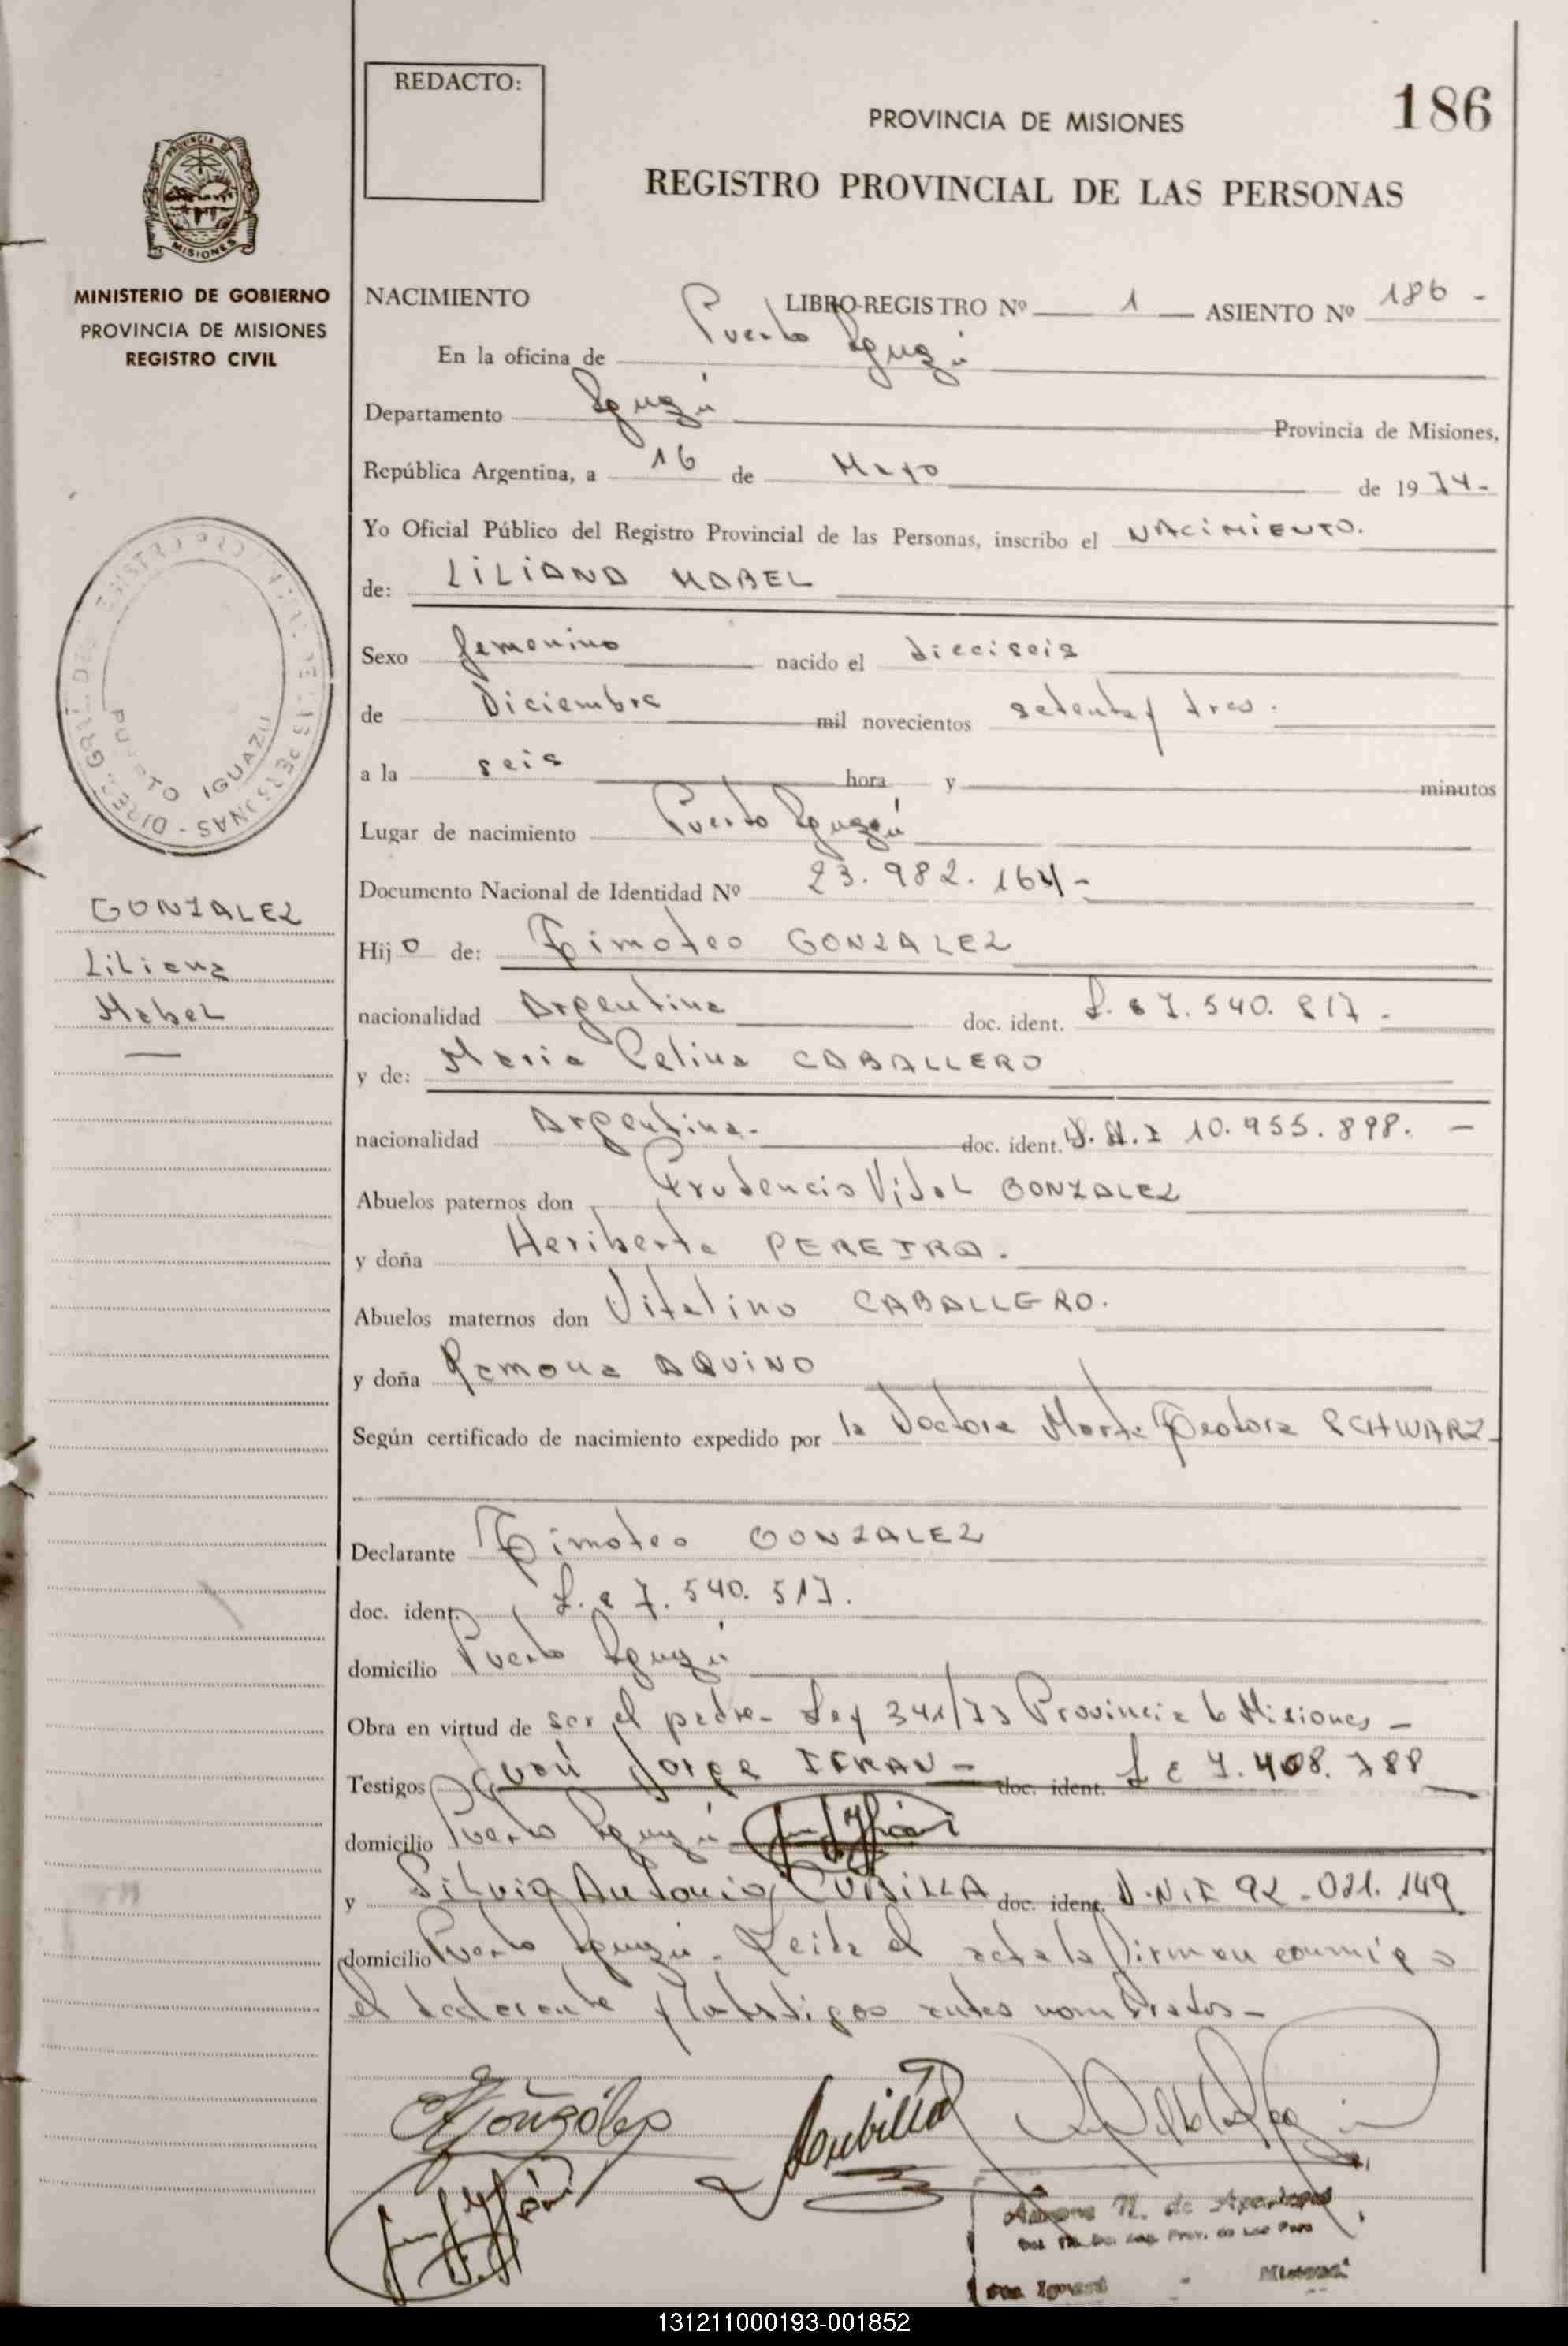 REDACTO:
186
PROVINCIA DE MISIONES
REGISTRO PROVINCIAL DE LAS PERSONAS
PROVINCIA DE
MISIONES
MINISTERIO DE GOBIERNO
PROVINCIA DE MISIONES
REGISTRO CIVIL
NACIMIENTO LIBRO-REGISTRO Nº 1 ASIENTO Nº 186 -
En la oficina de Puerto Iguazú
Departamento Iguazú Provincia de Misiones,
República Argentina, a 16 de Mayo de 1974-
Yo Oficial Público del Registro Provincial de las Personas, inscribo el NACIMIENTO.
de: LILIANA MABEL
Sexo femenino nacido el dieciseis
de Diciembre mil novecientos setenta y tres.
a la seis hora y minutos
Lugar de nacimiento Puerto Iguazú
Documento Nacional de Identidad Nº 23.982.164-
Hijo de: Timoteo GONZALEZ
nacionalidad Argentina doc. ident. L. e 7.540.517.-
y de: Maria Celina CABALLERO
nacionalidad Argentina.- doc. ident. D.N.I 10.955.898. -
Abuelos paternos don Prudencio Vidal GONZALEZ
y doña Heriberta PEREIRA.
Abuelos maternos don Vitalino CABALLERO.
y doña Ramona AQUINO
Según certificado de nacimiento expedido por la Doctora Marta Teodora SCHWARZ-
Declarante Timoteo GONZALEZ
doc. ident. L. e 7.540.517.
domicilio Puerto Iguazú
Obra en virtud de ser el padre- Ley 341/73 Provincia de Misiones -
Testigos Juan Jorge IFRAN - doc. ident. L e 7.408.788
domicilio Puerto Iguazú
y Silvio Antonio CUBILLA doc. ident. D.N.I 92.021.149
domicilio Puerto Iguazú. Leida el acta la firman conmigo
el declarante y los testigos antes nombrados-
GONZALEZ
Liliana
Mabel
PUERTO IGUAZU
131211000193-001852